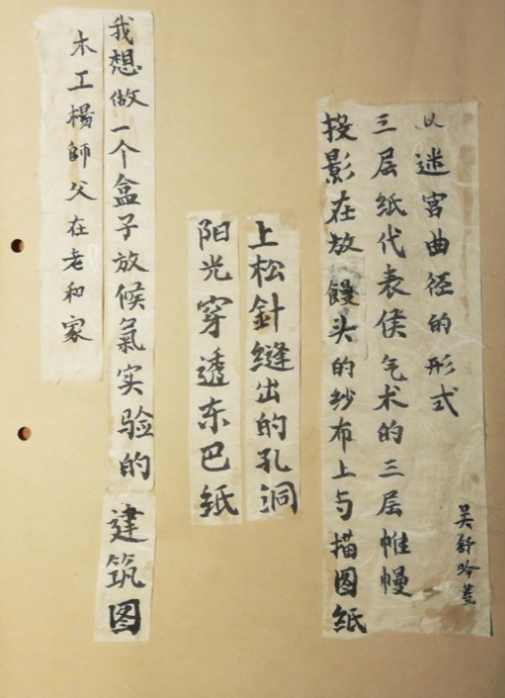 木工楊師父在老和家
我想做一个盒子放候氣实验的建筑图
阳光穿透东巴纸
上松針缝出的孔洞
投影在放饅头的纱布上与描图纸
三层纸代表侯气术的三层帷幔
以迷宫曲径的形式
吴